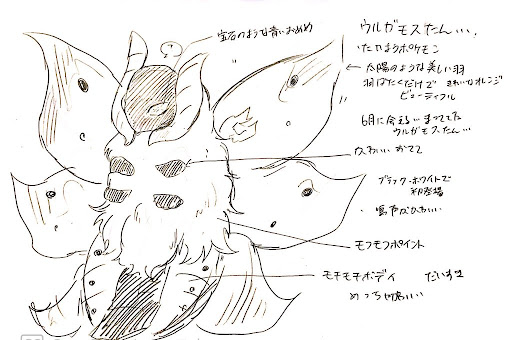 宝石のような青いおめめ
ウルガモスたん…
たいようポケモン
太陽のような美しい羽
羽ばたくだけで きれいなオレンジ
ビューティフル
6月に会える
ウルガモスたん…
かわいい
ブラック・ホワイトで
初登場
鳴き声がかわいい
モフモフポイント
モチモチボディ だいすき
めっちゃかわいい